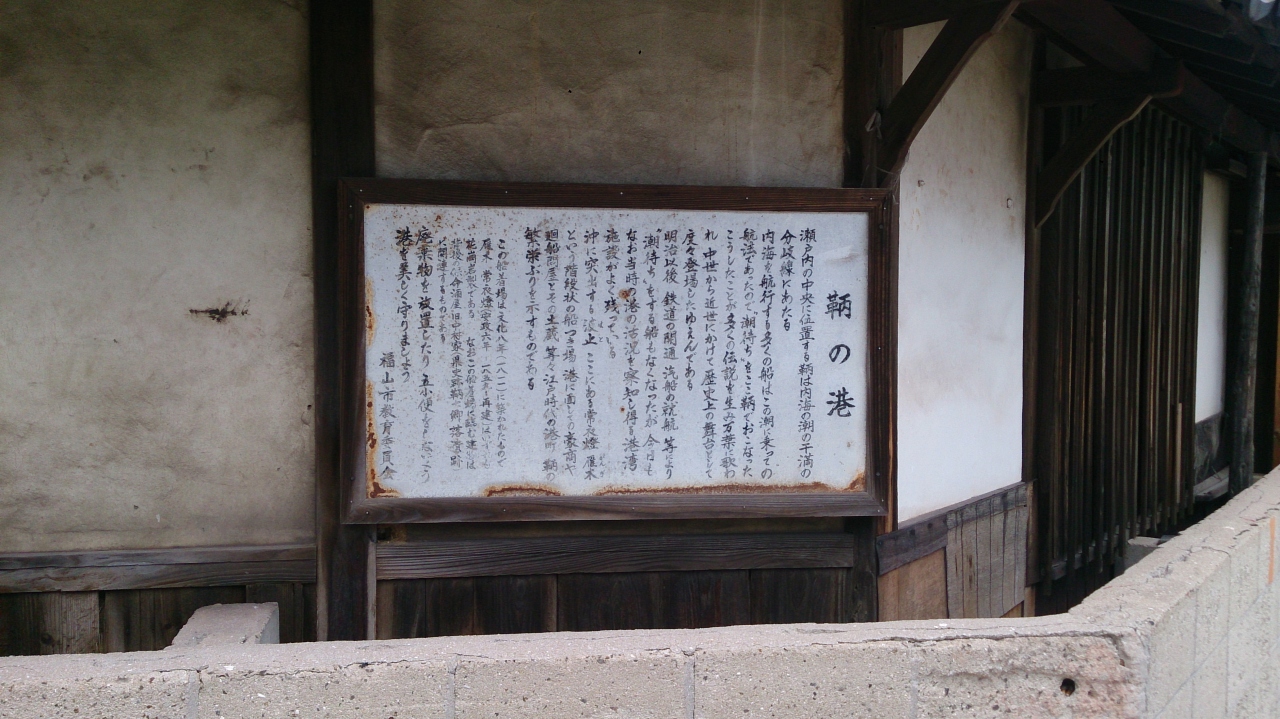 鞆の港
瀬戸内の中央に位置する鞆は内海の潮の干満の
分岐線にあたる
内海を航行する多くの船はこの潮に乗っての
航法であったので“潮待ち”をここ鞆でおこなった
こうしたことが多くの伝説を生み万葉に歌わ
れ 中世から近世にかけて歴史上の舞台として
度々登場したゆえんである
明治以後 鉄道の開通 汽船の就航 等により
“潮待ち”をする船もなくなったが 今日も
なお当時の港の活況を察知し得る港湾
施設がよく残っている
沖に突出する波止 ここにある常夜燈 雁木
という階段状の船つき場 港に面しての豪商や
廻船問屋とその土蔵 等々 江戸時代の港町 鞆の
繁栄ぶりを示すものである
この船着場は文化八年(一八一一)に築かれたもので
雁木 常夜燈は安政六年
なおこの船着場に
廃棄物を放置したり
港を美しく守りましょう
福山市教育委員会